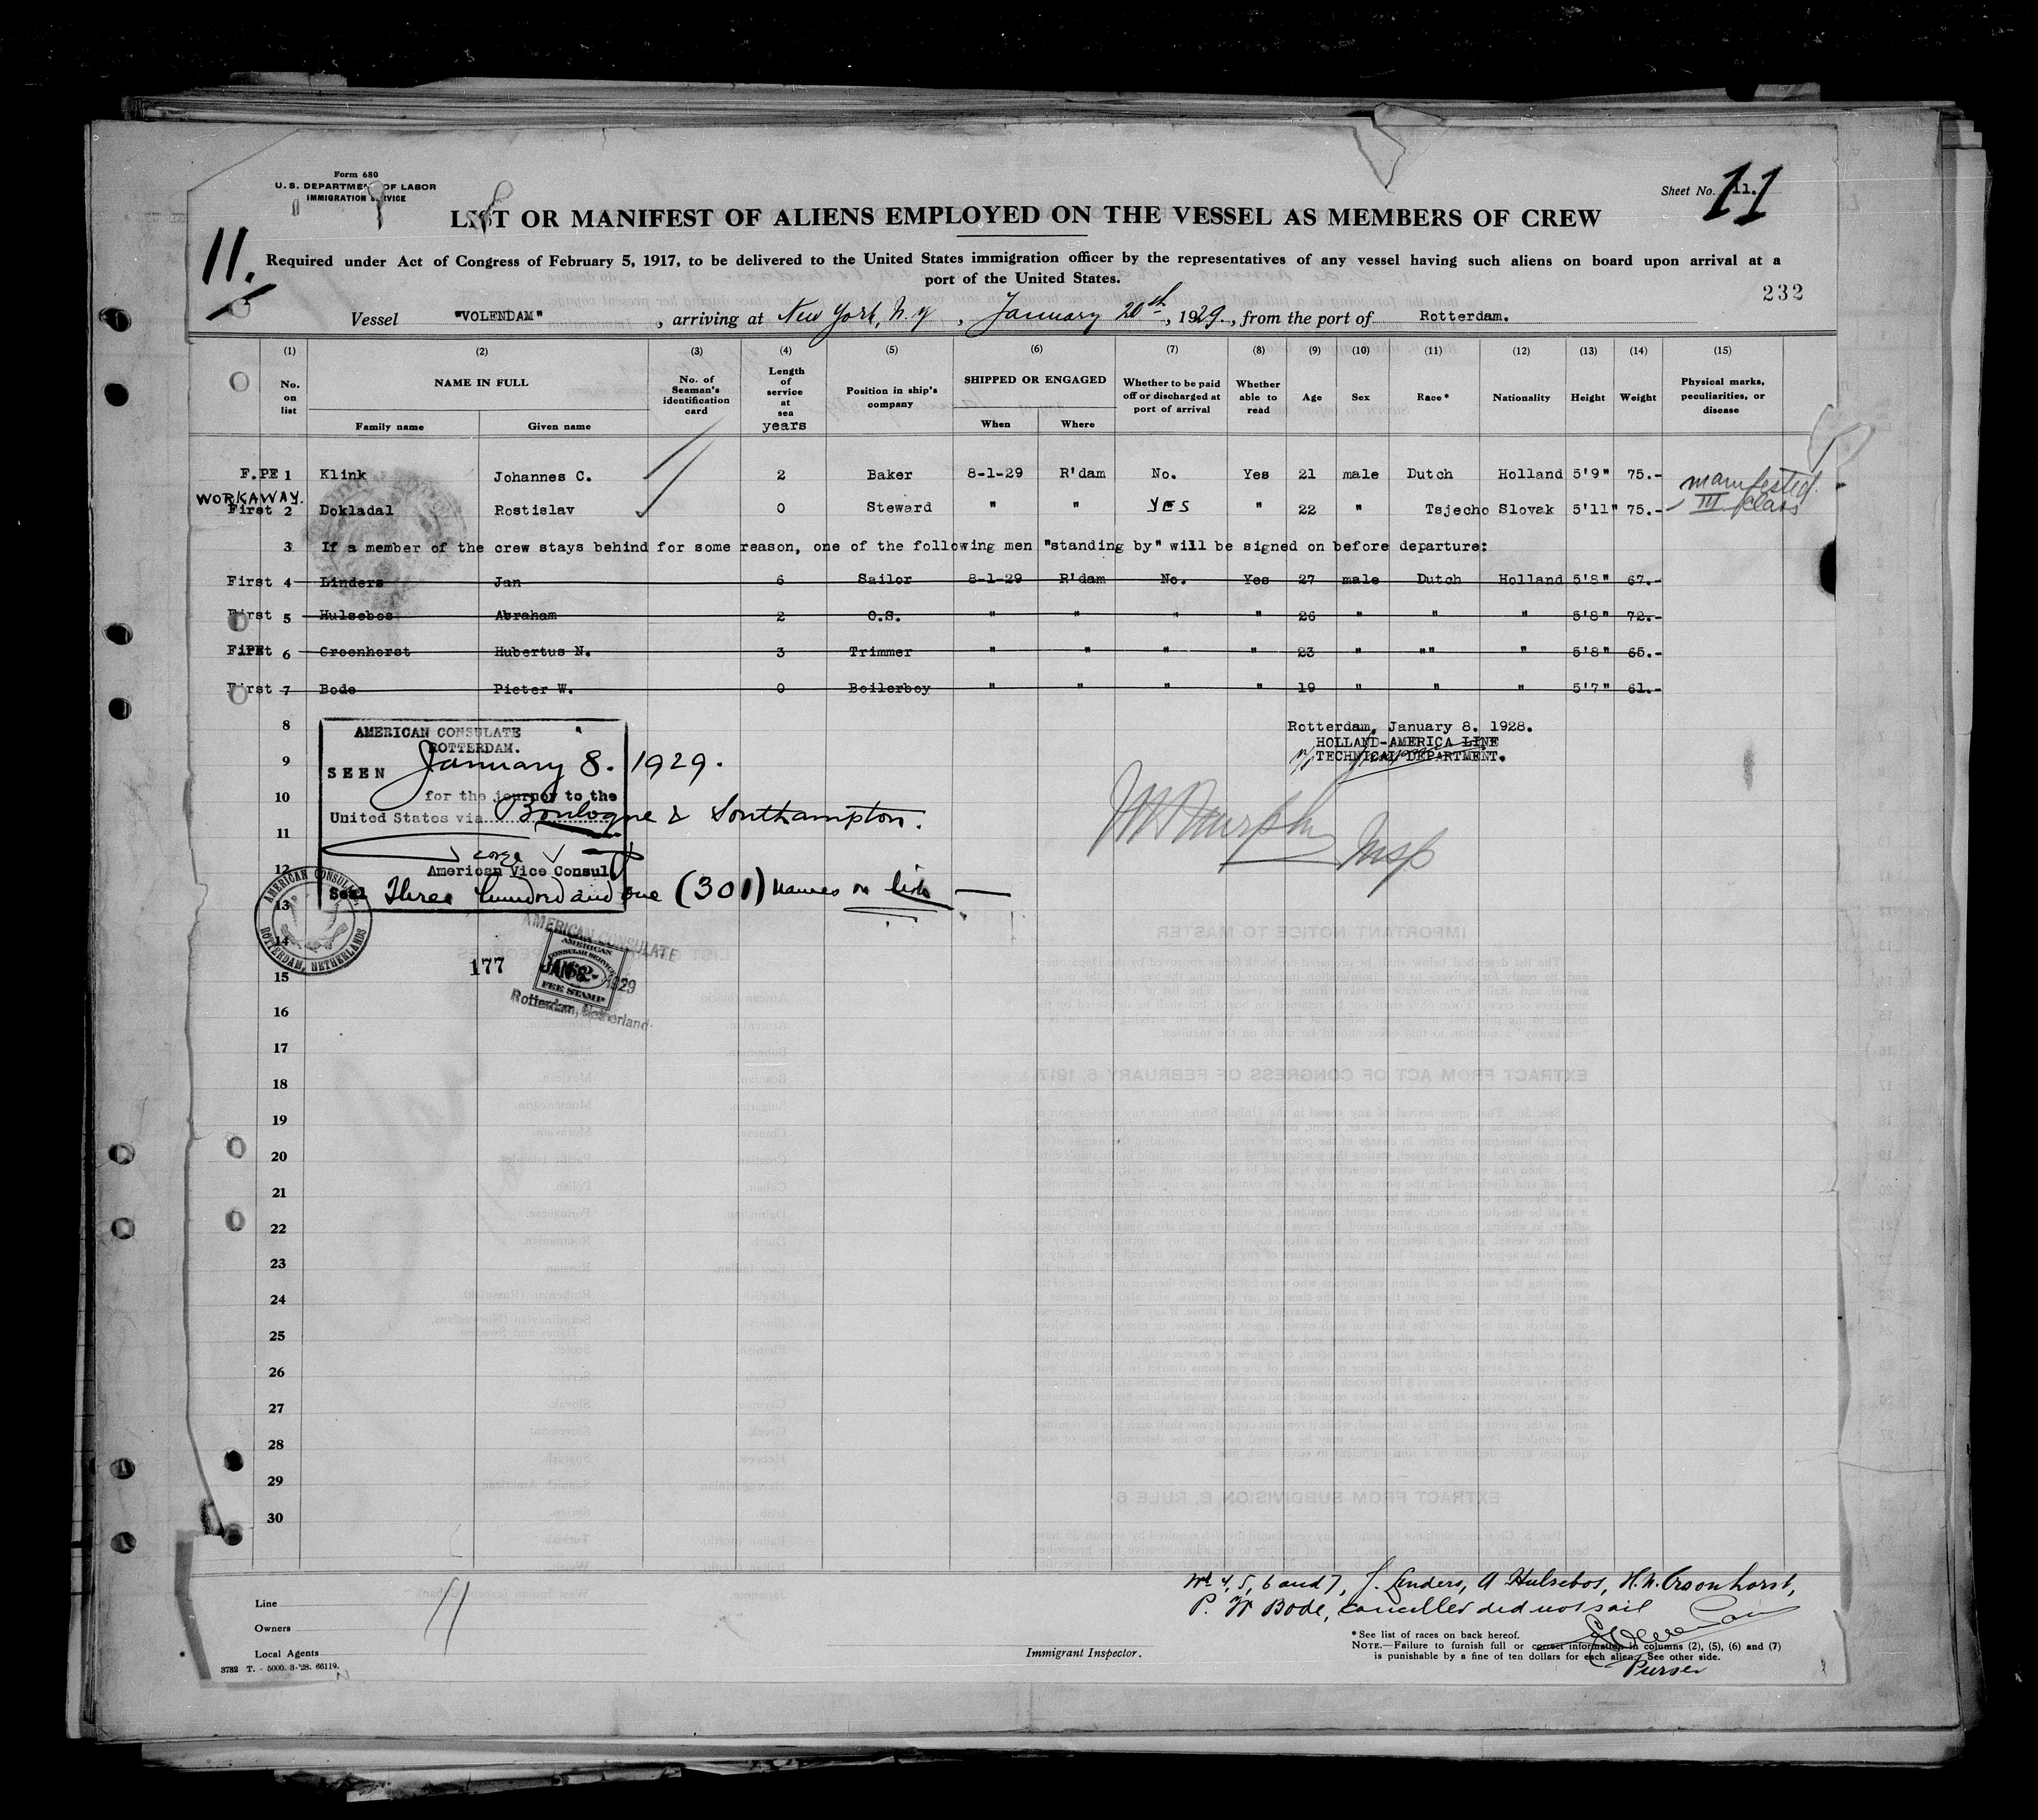 Form 680
U. S. DEPARTMENT OF LABOR
IMMIGRATION SERVICE
Sheet No. 11.
11
LIST OR MANIFEST OF ALIENS EMPLOYED ON THE VESSEL AS MEMBERS OF CREW
11.
Required under Act of Congress of February 5, 1917, to be delivered to the United States immigration officer by the representatives of any vessel having such aliens on board upon arrival at a
port of the United States.
232
Vessel "VOLENDAM" , arriving at New York, N.Y , January 20th , 1929. , from the port of Rotterdam.
(1) (2) (3) (4) (5) (6) (7) (8) (9) (10) (11) (12) (13) (14) (15)
No. on list NAME IN FULL Family name Given name No. of Seaman's identification card Length of service at sea years Position in ship's company SHIPPED OR ENGAGED When Where Whether to be paid off or discharged at port of arrival Whether able to read Age Sex Race* Nationality Height Weight Physical marks, peculiarities, or disease
F.PE 1 Klink Johannes C. 2 Baker 8-1-29 R'dam No. Yes 21 male Dutch Holland 5'9" 75.-
WORKAWAY. manifested
First 2 Dokladal Rostislav 0 Steward " " YES " 22 " Tsjecho Slovak 5'11" 75.- III class
3 If a member of the crew stays behind for some reason, one of the following men "standing by" will be signed on before departure:
First 4 Linders Jan 6 Sailor 8-1-29 R'dam No. Yes 27 male Dutch Holland 5'8" 67.-
First 5 Hulsebos Abraham 2 O.S. " " " " 26 " " " 5'8" 72.-
First 6 Croonhorst Hubertus N. 3 Trimmer " " " " 23 " "" " 5'8" 65.-
First 7 Bode Pieter W. 0 Boilerboy " " " " 19 " " " 5'7" 61.-
8
AMERICAN CONSULATE
ROTTERDAM.
Rotterdam, January 8. 1928.
HOLLAND-AMERICA LINE
TECHNICAL DEPARTMENT.
9
SEEN January 8. 1929.
for the journey to the
10
United States via Boulogne & Southampton.
11
Murphy Insp
12
American Vice Consul
Seal Three hundred and one (301) names on list
13
AMERICAN CONSULATE
ROTTERDAM, NETHERLANDS
14
AMERICAN CONSULATE
AMERICAN
CONSULAR SERVICE
JAN 8 - 1929
FEE STAMP
Rotterdam, Netherland
177
15
16
17
18
19
20
21
22
23
24
25
26
27
28
29
30
Line
Owners
Local Agents
11
3782 T. - 5000. 3-'28. 66119.
Immigrant Inspector.
No 4, 5, 6 and 7, J. Linders, A Hulsebos, H.N. Croonhorst,
P. W Bode, cancelled did not sail
*See list of races on back hereof.
NOTE.—Failure to furnish full or correct information in columns (2), (5), (6) and (7)
is punishable by a fine of ten dollars for each alien. See other side.
Purser